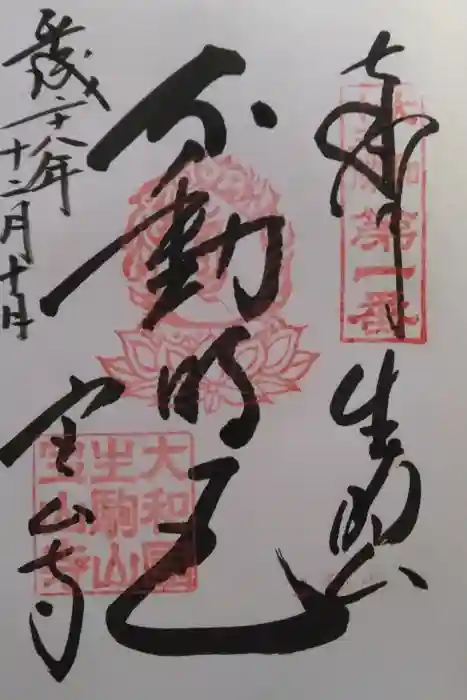 奉拝
生駒山
第一番
不動明王
平成二十八年
十二月十日
宝山寺
大和國
生駒山
宝山寺